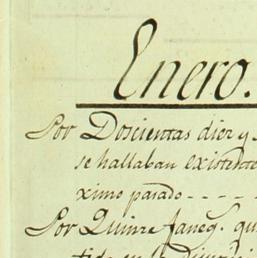 Enero.
Por Doscientas diez y
se hallaban existente
ximo pasado - - - - -
Por Quinze faneg. qu